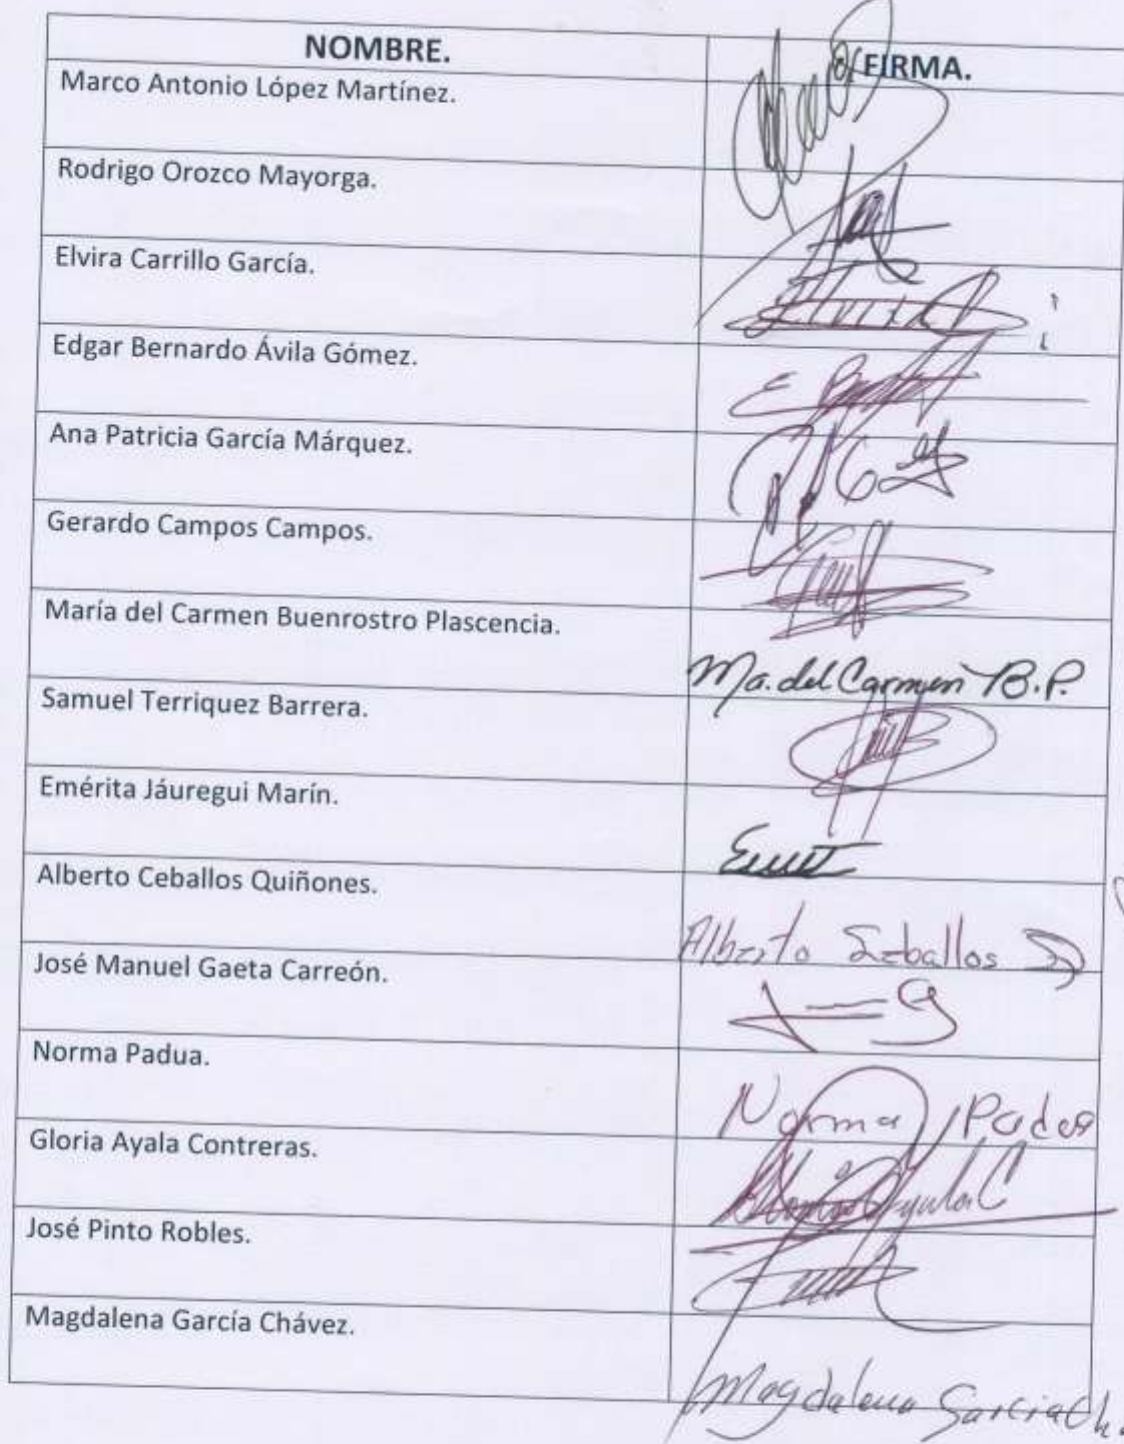 NOMBRE. FIRMA.
Marco Antonio López Martínez.
Rodrigo Orozco Mayorga.
Elvira Carrillo García.
Edgar Bernardo Ávila Gómez.
Ana Patricia García Márquez.
Gerardo Campos Campos.
María del Carmen Buenrostro Plascencia.
Ma. del Carmen B.P.
Samuel Terriquez Barrera.
Emérita Jáuregui Marín.
Alberto Ceballos Quiñones.
Alberto Seballos
José Manuel Gaeta Carreón.
Norma Padua.
Norma
Gloria Ayala Contreras.
Gloria Ayala C
José Pinto Robles.
Magdalena García Chávez.
Magdalena Garcia Ch.